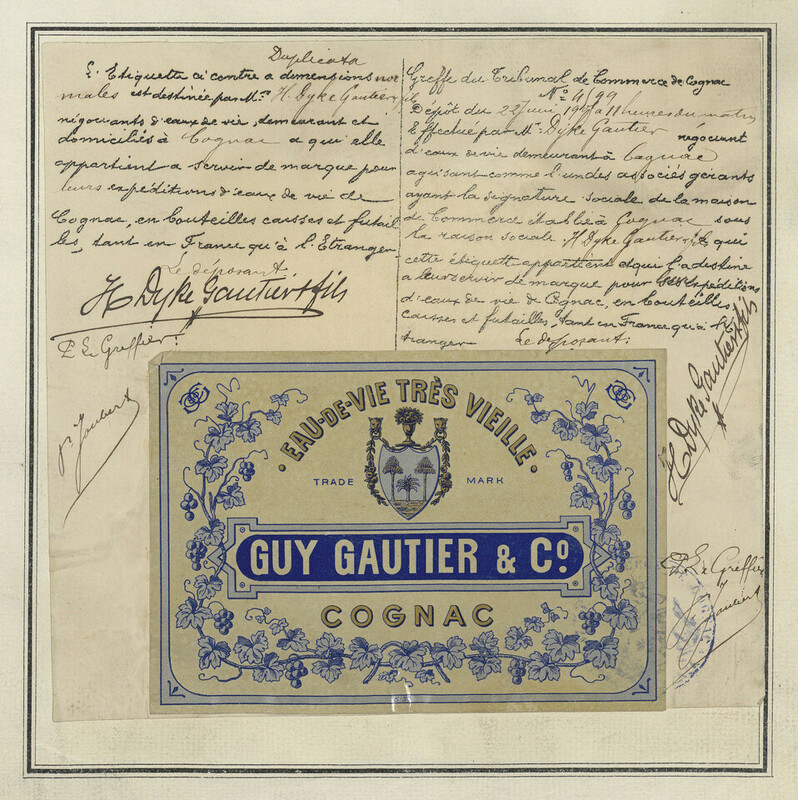 Duplicata
L'Etiquette ci contre a dimensions nor
males est destinée par Mrs H. Dyke Gautier & fils
négociants d'eaux de vie, demeurant et
domiciliés à Cognac a qui elle
appartient a servir de marque pour
leurs expéditions d'eaux de vie de
Cognac, en bouteilles caisses et futail
les, tant en France qu'à l'Etranger
Le déposant
H Dyke Gautier & fils
P. Le Greffier:
P. Joubert
Greffe du Tribunal de Commerce de Cognac
No 4199
Dépôt du 22 Juin à 11 heures du matin
Effectué par Mr Dyke Gautier négociant
d'eaux de vie demeurant à Cognac
agissant comme l'un des associés gérants
ayant la signature sociale de la maison
de Commerce établie à Cognac sous
la raison sociale H Dyke Gautier & fils qui
cette étiquette appartient et qui l'a destine
a leur servir de marque pour expéditions
d'eaux de vie de Cognac, en bouteilles,
caisses et futailles, tant en France qu'à l'E
tranger Le déposant:
H Dyke Gautier & fils
P. Le Greffier
Joubert
EAU-DE-VIE TRÈS VIEILLE
TRADE MARK
GUY GAUTIER & Co
COGNAC